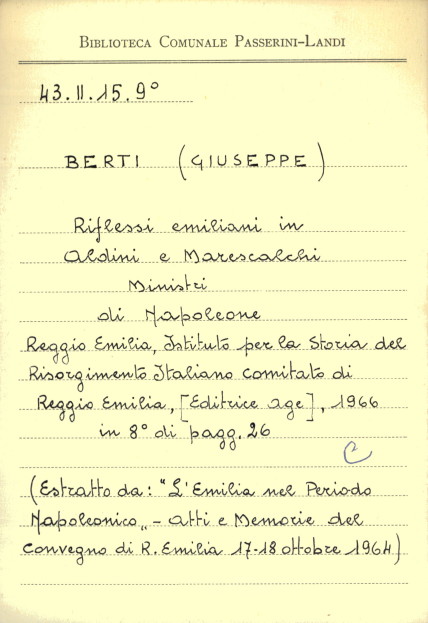 BIBLIOTECA COMUNALE PASSERINI-LANDI
43.II.15.9°
BERTI (GIUSEPPE)
Riflessi emiliani in
Aldini e Marescalchi
Ministri
di Napoleone
Reggio Emilia, Istituto per la Storia del
Risorgimento Italiano comitato di
Reggio Emilia, [Editrice age], 1966
in 8° di pagg. 26
C
(Estratto da: "L'Emilia nel Periodo
Napoleonico„ - Atti e Memorie del
Convegno di R. Emilia 17-18 ottobre 1964)